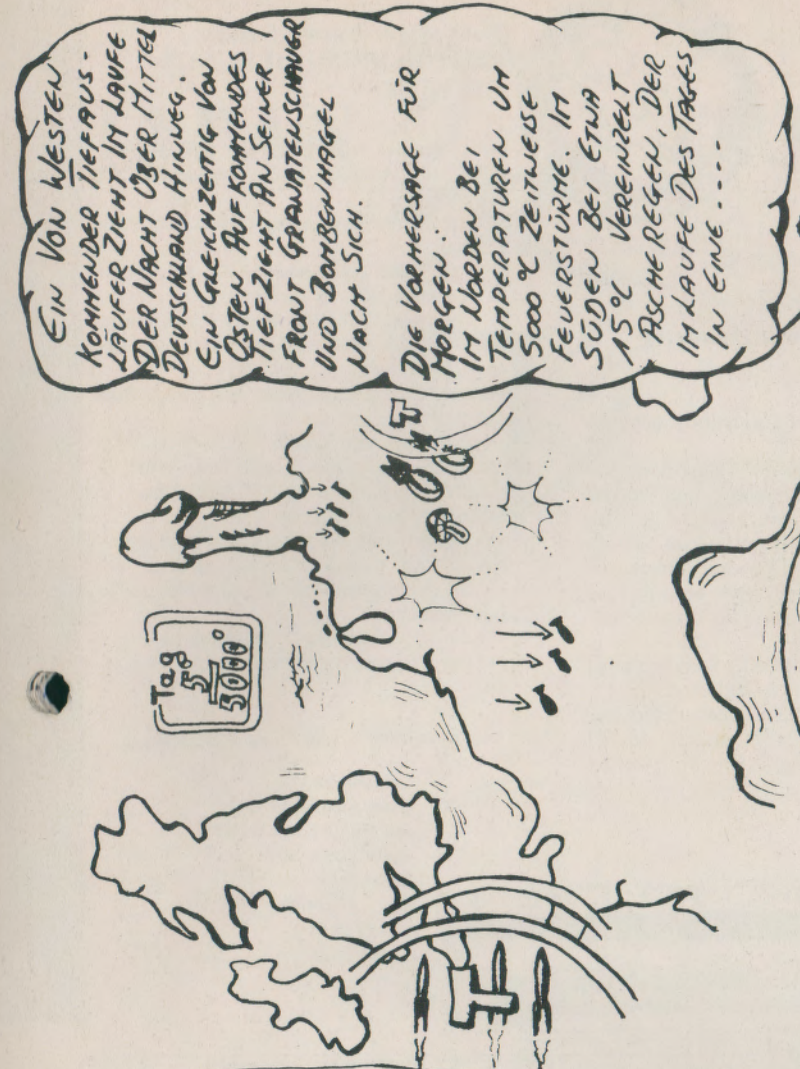 EIN VON WESTEN
KOMMENDER TIEFAUS-
LÄUFER ZIEHT IM LAUFE
DER NACHT ÜBER MITTEL
DEUTSCHLAND HINWEG.
EIN GLEICHZEITIG VON
OSTEN AUFKOMMENDES
TIEF ZIEHT AN SEINER
FRONT GRANATENSCHAUER
UND BOMBENHAGEL
NACH SICH.
DIE VORHERSAGE FÜR
MORGEN:
IM NORDEN BEI
TEMPERATUREN UM
5000 °C ZEITWEISE
FEUERSTÜRME. IM
SÜDEN BEI ETWA
15°C VEREINZELT
ASCHEREGEN, DER
IM LAUFE DES TAGES
IN EINE ....
Tag
5°
5000°
T
T